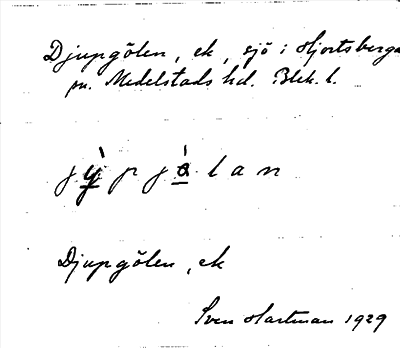 Djupgölen, ek, sjö i Hjortsberga
sn. Medelstads hd. Blek. l.
jỳ̲pjò̲lan
Djupgölen, ek
Sven Hartman 1929